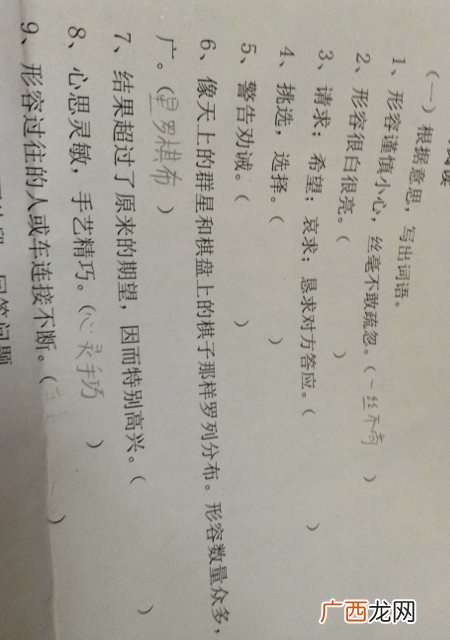 阅读
（一）根据意思，写出词语。
1、形容谨慎小心，丝毫不敢疏忽。（一丝不苟）
2、形容很白很亮。（ ）
3、请求；希望；哀求；恳求对方答应。（ ）
4、挑选，选择。（ ）
5、警告劝诫。（ ）
6、像天上的群星和棋盘上的棋子那样罗列分布。形容数量众多，
广。（星罗棋布）
7、结果超过了原来的期望，因而特别高兴。（ ）
8、心思灵敏，手艺精巧。（心灵手巧）
9、形容过往的人或车连接不断。（ ）
回答问题
广西龙网